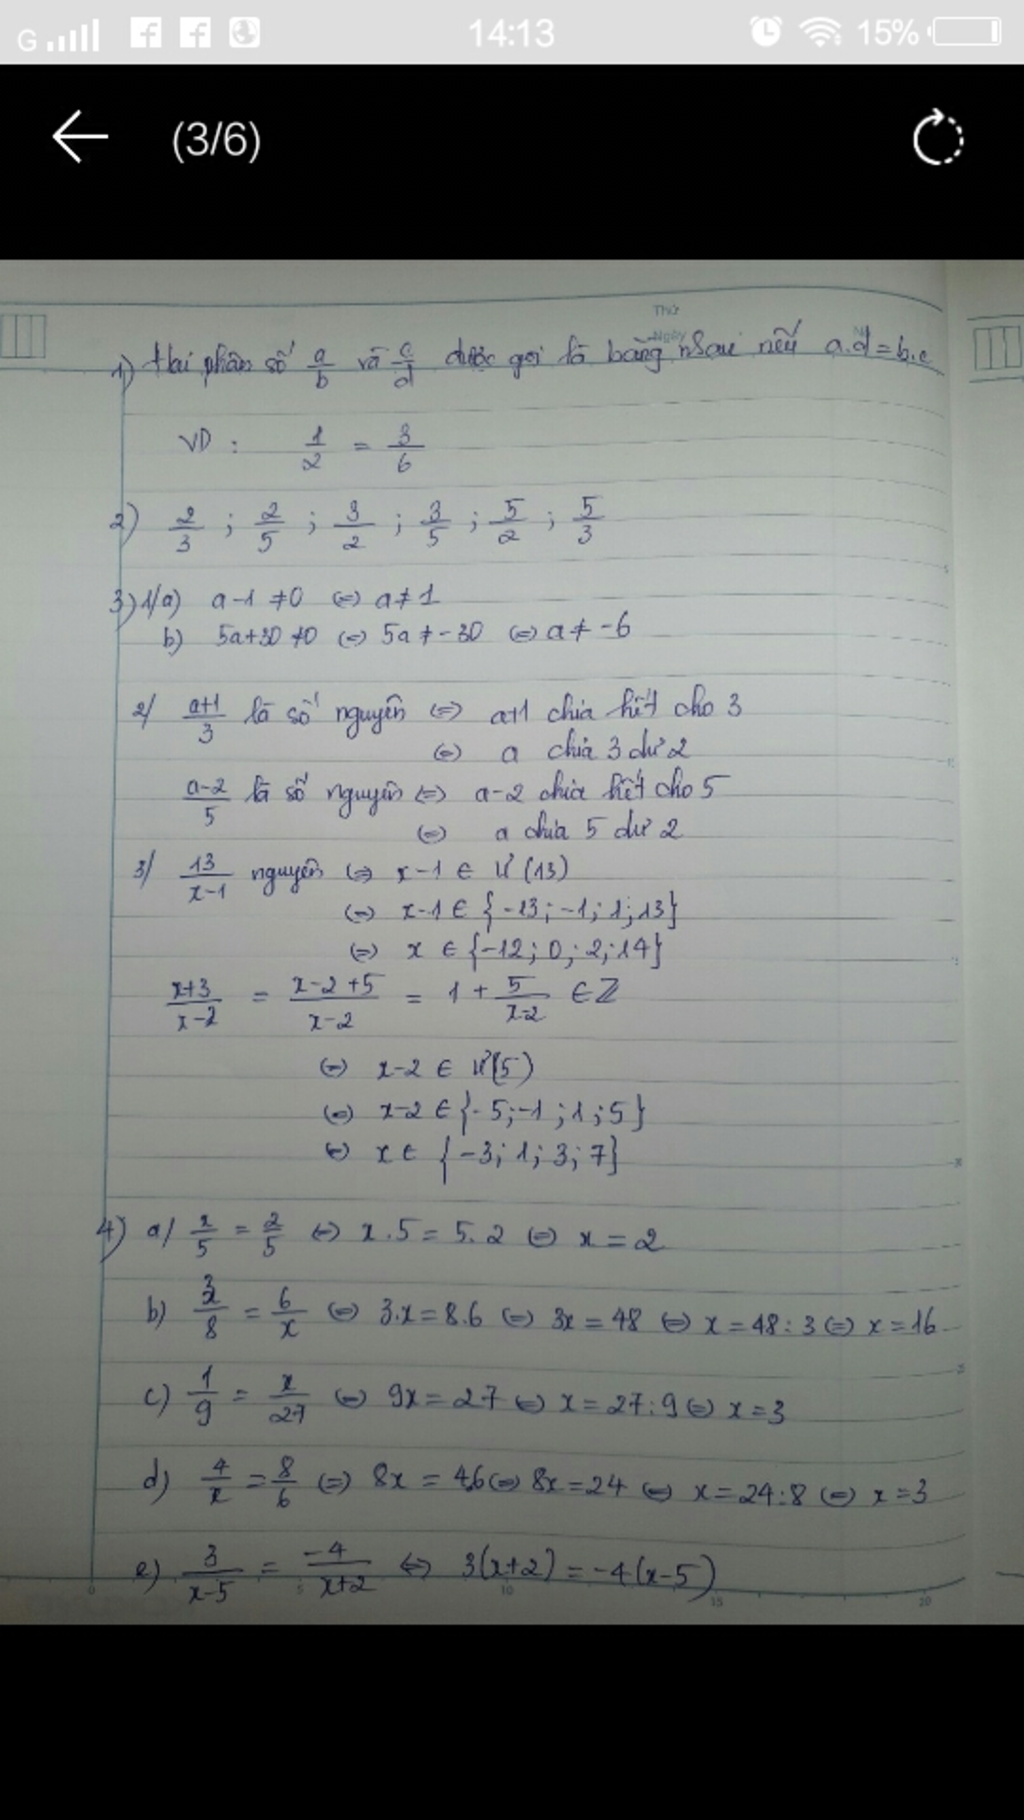 G 14:13 15%
(3/6)
Thứ
Ngày
1) Hai phân số a/b và c/d được gọi là bằng nhau nếu a.d=b.c
VD : 1/2 = 3/6
2) 2/3 ; 2/5 ; 3/2 ; 3/5 ; 5/2 ; 5/3
3) 1/a) a-1 ≠0 (=) a≠1
b) 5a+30 ≠0 (=) 5a ≠-30 (=) a≠ -6
2/ a+1/3 là số nguyên (=) a+1 chia hết cho 3
(=) a chia 3 dư 2
a-2/5 là số nguyên (=) a-2 chia hết cho 5
(=) a chia 5 dư 2
3/ 13/x-1 nguyên (=) x-1 ∈ Ư(13)
(=) x-1 ∈ {-13; -1; 1; 13}
(=) x ∈ {-12; 0; 2; 14}
x+3/x-2 = x-2+5/x-2 = 1 + 5/x-2 ∈ Z
(=) x-2 ∈ Ư(5)
(=) x-2 ∈ {-5;-1;1;5}
(=) x ∈ {-3; 1; 3; 7}
4) a/ x/5 = 2/5 (=) x.5 = 5.2 (=) x = 2
b) 3/8 = 6/x (=) 3.x=8.6 (=) 3x = 48 (=) x = 48:3 (=) x = 16
c) 1/9 = x/27 (=) 9x = 27 (=) x = 27:9 (=) x = 3
d) 4/x = 8/6 (=) 8x = 4.6 (=) 8x = 24 (=) x = 24:8 (=) x = 3
e) 3/x-5 = -4/x+2 (=) 3(x+2) = -4(x-5)
0 5 10 15 20